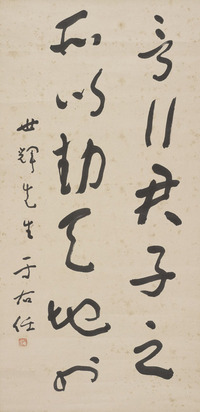 言行君子之
所以動天地也
世輝先生 于右任